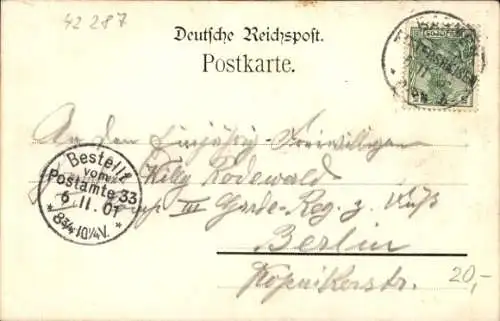 42 287
Deutsche Reichspost.
Postkarte.
An den Einjährig-Freiwilligen
Willy Rodewald
Comp. III Garde-Reg. z. Fuß
Berlin
Köpnikerstr.
20,-
Bestellt
vom
Postamte 33
6.11.01
* 8¾-10¼V. *